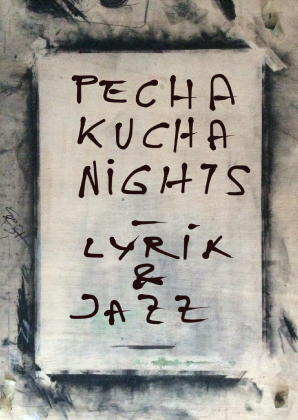 PECHA
KUCHA
NiGHTS
–
LYRiK
&
JAZZ